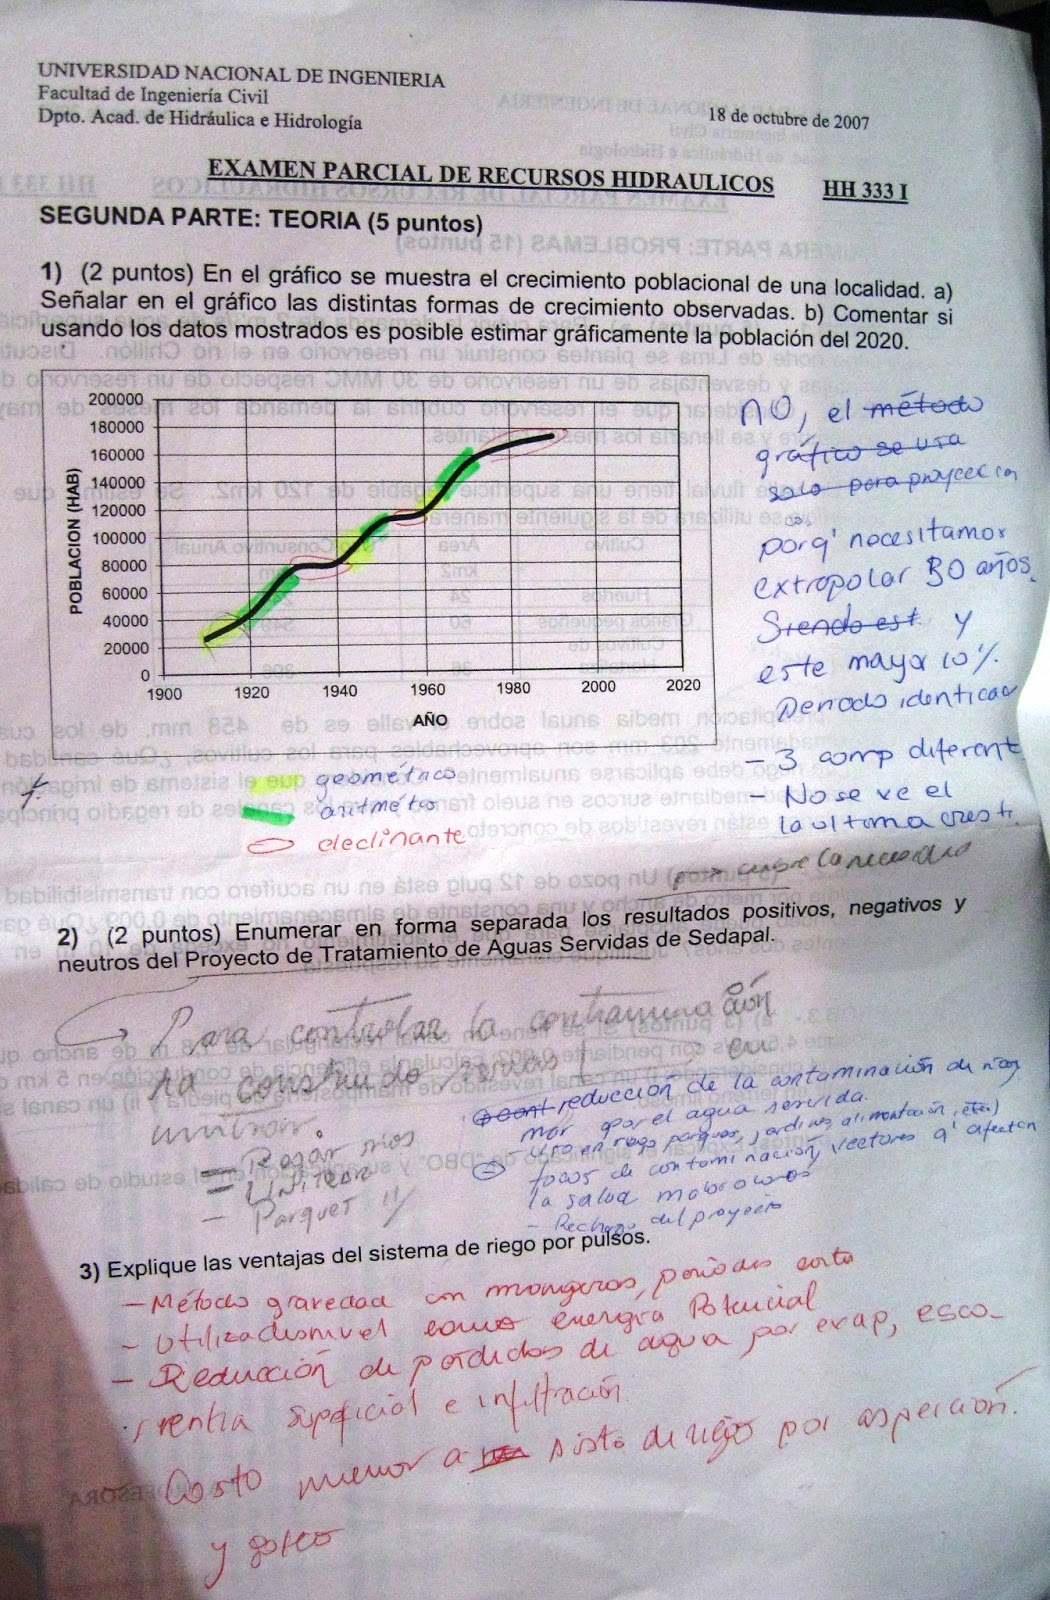 UNIVERSIDAD NACIONAL DE INGENIERIA
Facultad de Ingeniería Civil
Dpto. Acad. de Hidráulica e Hidrología
18 de octubre de 2007
EXAMEN PARCIAL DE RECURSOS HIDRAULICOS HH 333 I
SEGUNDA PARTE: TEORIA (5 puntos)
1) (2 puntos) En el gráfico se muestra el crecimiento poblacional de una localidad. a)
Señalar en el gráfico las distintas formas de crecimiento observadas. b) Comentar si
usando los datos mostrados es posible estimar gráficamente la población del 2020.
POBLACION (HAB)
200000
180000
160000
140000
120000
100000
80000
60000
40000
20000
0
1900 1920 1940 1960 1980 2000 2020
AÑO
NO, el método
gráfico se usa
solo para proyeccion
porq' necesitamos
extrapolar 30 años.
Siendo est y
este mayor 10%
Periodo identicar
- 3 comp diferent
- No se ve el
la ultima crest
geométrico
aritmético
declinante
2) (2 puntos) Enumerar en forma separada los resultados positivos, negativos y
neutros del Proyecto de Tratamiento de Aguas Servidas de Sedapal.
Para controlar la contaminación
ha construido
reducción de la contaminación de rios
mar por el agua servida.
- Uso en riego parques, jardines, alimentación, etc.)
focos de contaminación, vectores q' afectan
la salud
- Rechazo del proyecto
- Regar
- Parques
3) Explique las ventajas del sistema de riego por pulsos.
- Método gravedad con mangeras, periodos corto
- Utiliza desnivel como energía Potencial
- Reducción de perdidas de agua por evap, esco-
rentia superficial e infiltración.
- Costo menor a sist. de riego por aspersión.
y goteo